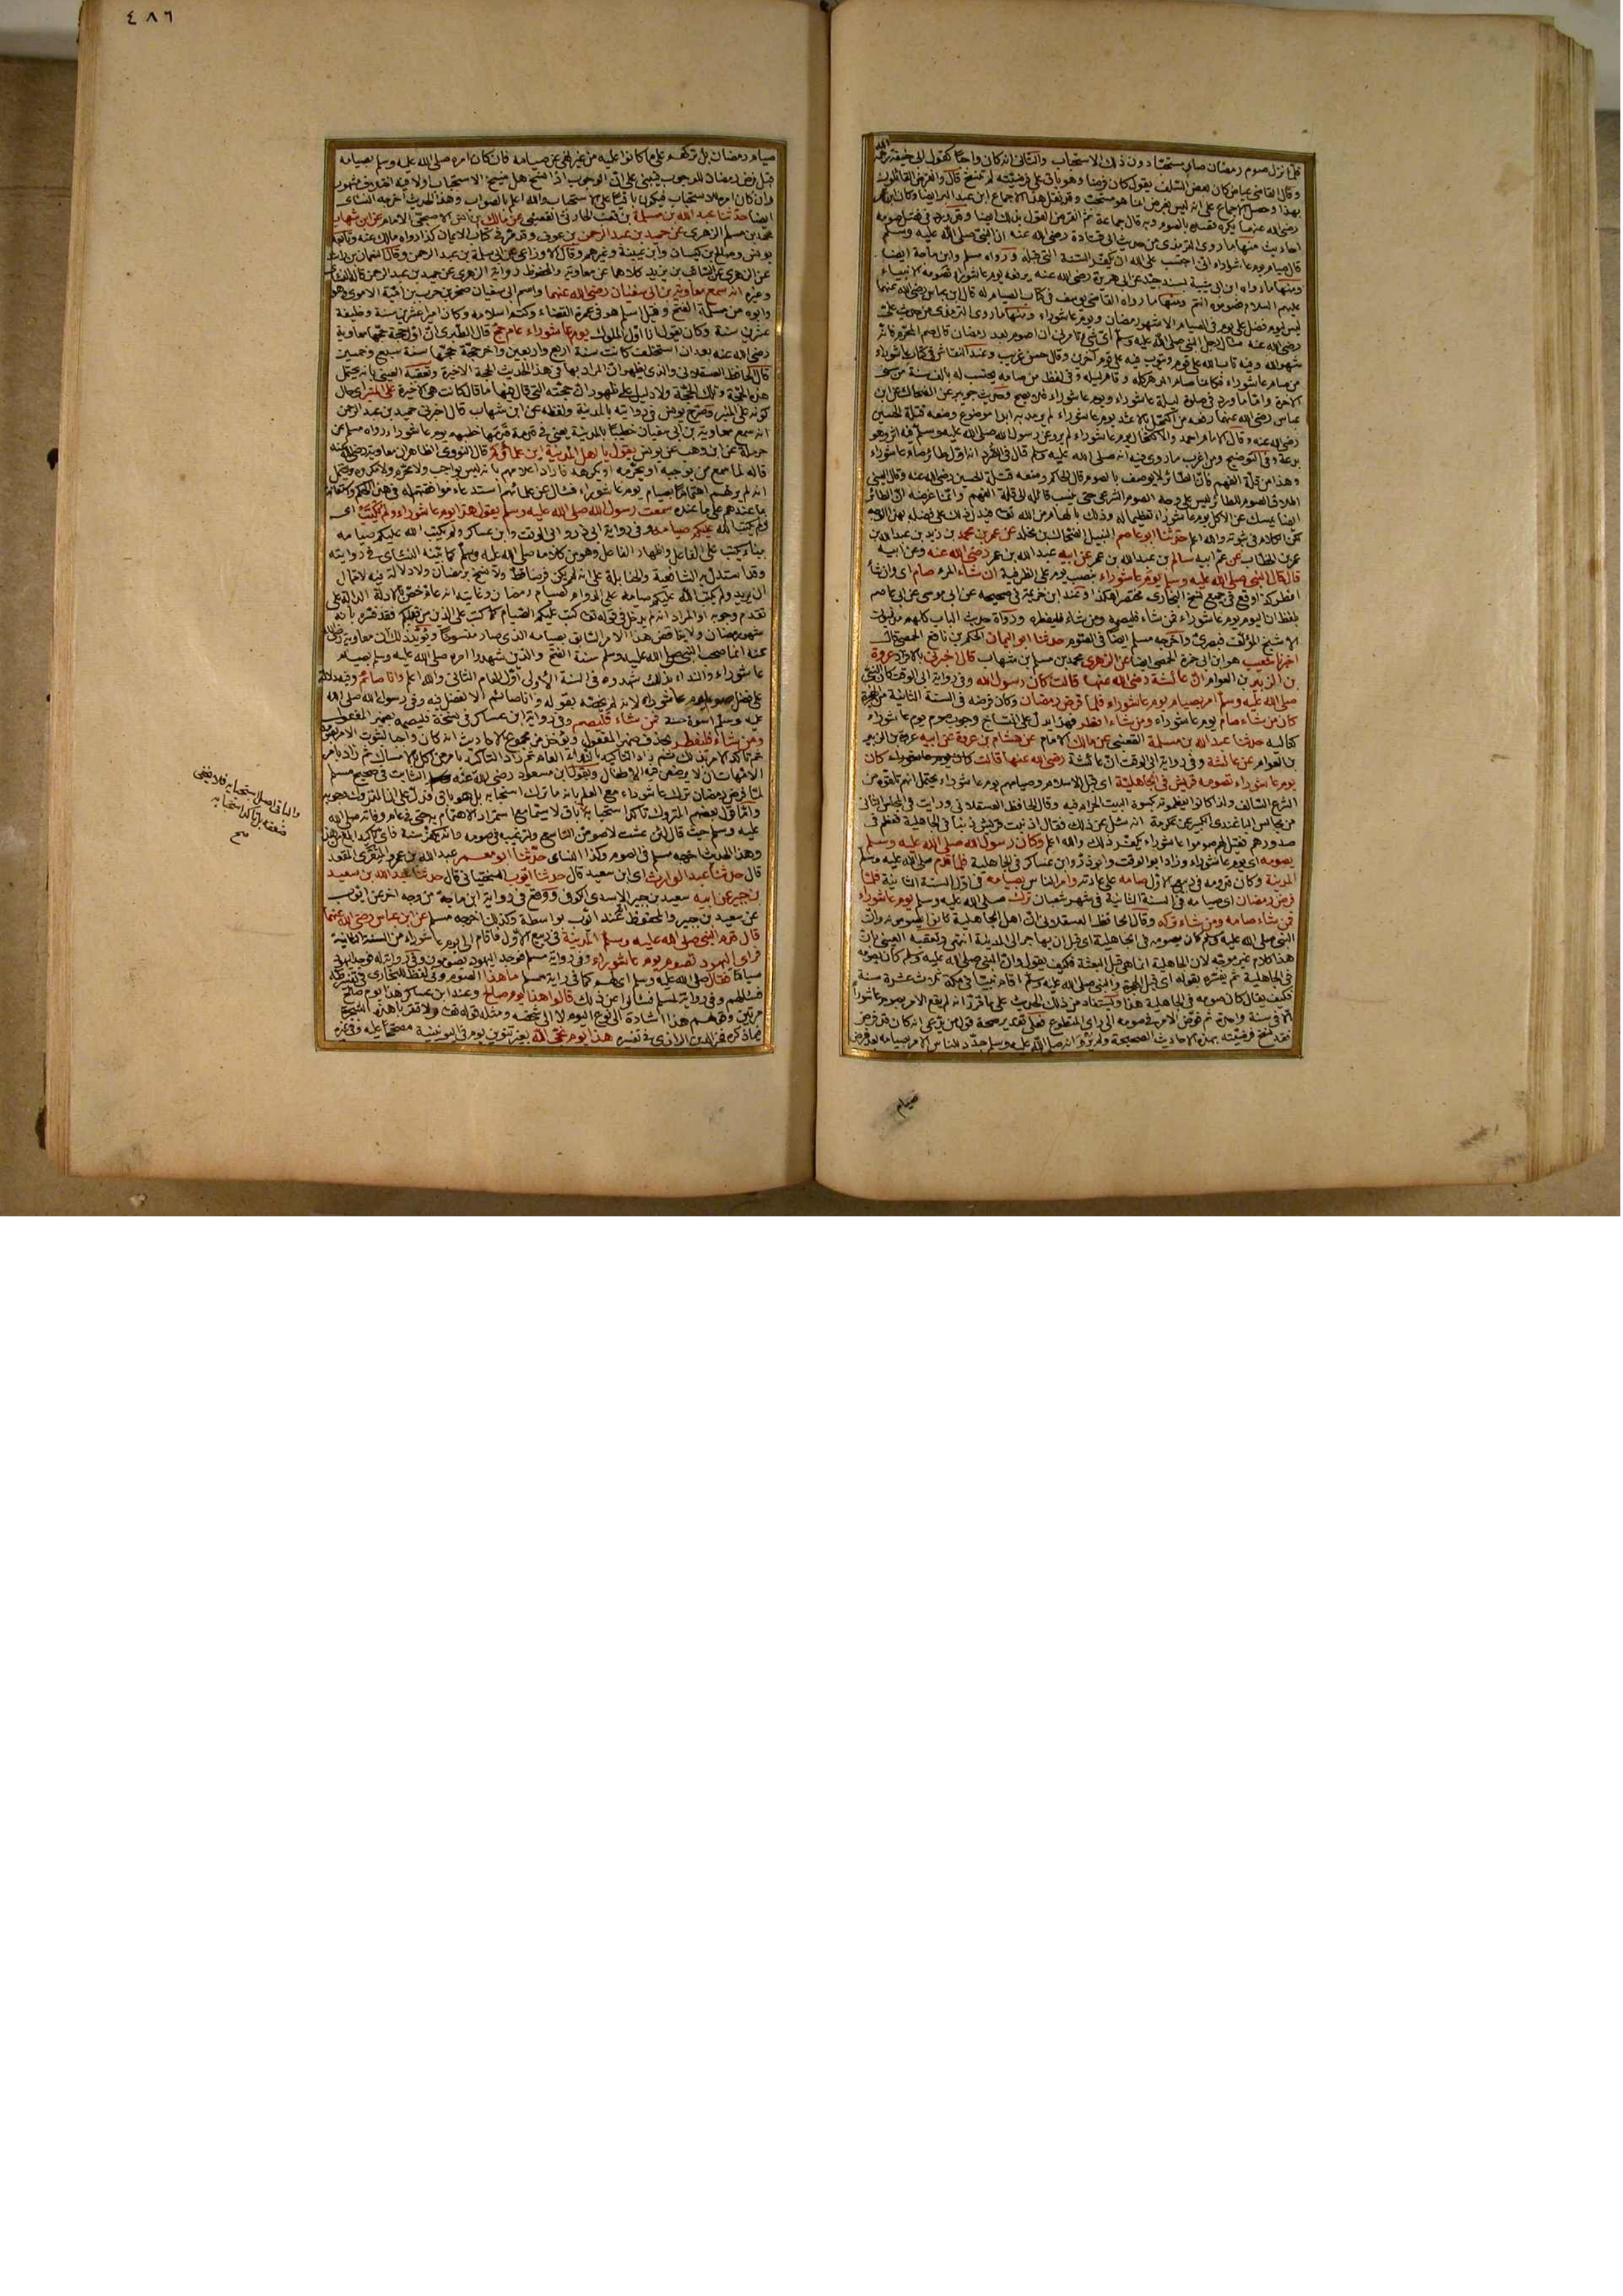 ٤٨٦
فلما نزل صوم رمضان صار مستحبا دون ذلك الاستحباب والثاني انه كان واجبا كقول ابي حنيفة رحمه الله
وقال القاضي عياض كان بعض السلف يقول كان فرضا وهو باق على فرضيته لم ينسخ قال وانقرض القائلون
بهذا وحصل الاجماع على انه ليس بفرض انما هو مستحب وقد نقل هذا الاجماع ابن عبد البر ايضا وكان ابن عمر
رضي الله عنهما يكره قصده بالصوم وبه قال جماعة ثم انقرض القول بذلك ايضا وقد ورد في فضل صومه
احاديث منها ما روى الترمذي من حديث ابي قتادة رضي الله عنه ان النبي صلى الله عليه وسلم
قال صيام يوم عاشوراء اني احتسب على الله ان يكفر السنة التي قبله ورواه مسلم وابن ماجة ايضا
ومنها ما رواه ابن ابي شيبة بسند جيد عن ابي هريرة رضي الله عنه يرفعه يوم عاشوراء تصومه الانبياء
عليهم السلام فصوموه انتم ومنها ما رواه القاضي يوسف في كتاب الصيام له قال ابن عباس رضي الله عنهما
ليس ليوم فضل على يوم في الصيام الا شهر رمضان ويوم عاشوراء ومنها ما روى الترمذي من حديث علي
رضي الله عنه سأل رجل النبي صلى الله عليه وسلم اي شيء تأمرني ان اصوم بعد رمضان قال صم المحرم فانه
شهر الله وفيه يوم تاب الله على قوم ويتوب فيه على قوم آخرين وقال حسن غريب وعند النقاش في كتاب عاشوراء
من صام عاشوراء فكانما صام الدهر كله وقام ليله وفي لفظ من صامه يحتسب له بالف سنة من سني
الآخرة واما ما ورد في صلوة ليلة عاشوراء ويوم عاشوراء فلا يصح وحديث جويبر عن الضحاك عن ابن
عباس رضي الله عنهما رفعه من اكتحل بالاثمد يوم عاشوراء لم يرمد ابدا موضوع وضعه قتلة الحسين
رضي الله عنه وقال الامام احمد والاكتحال يوم عاشوراء لم يرو عن رسول الله صلى الله عليه وسلم فيه اثر وهو
بدعة وفي التوضيح ومن اغرب ما روي فيه انه صلى الله عليه وسلم قال في الصرد انه اول طائر صام عاشوراء
وهذا من قلة الفهم فان الطائر لا يوصف بالصوم قال الحاكم وضعه قتلة الحسين رضي الله عنه وقال العيني
اطلاق الصوم للطائر ليس على وجه الصوم الشرعي حتى ينسب قائله الى قلة الفهم وانما غرضه ان الطائر
ايضا يمسك عن الاكل يوم عاشوراء تعظيما له وذلك بالهام من الله تعالى فيدل ذلك على فضله بهذا الوجه
لكن الكلام في ثبوته والله اعلم حدثنا ابو عاصم النبيل الضحاك بن مخلد عن عمر بن محمد بن زيد بن عبد الله بن
عمر بن الخطاب عن عم ابيه سالم بن عبد الله بن عمر عن ابيه عبد الله بن عمر رضي الله عنه وعن ابيه
قال قال النبي صلى الله عليه وسلم يوم عاشوراء بنصب يوم على الظرفية ان شاء المرء صام اي وان شاء
افطر كذا وقع في جميع نسخ البخاري مختصرا هكذا وعند ابن خزيمة في صحيحه عن ابي موسى عن ابي عاصم
بلفظ ان اليوم يوم عاشوراء فمن شاء فليصمه ومن شاء فليفطره ورواة حديث الباب كلهم مدنيون
الا شيخ المؤلف فبصري واخرجه مسلم ايضا في الصوم حدثنا ابو اليمان الحكم بن نافع الحمصي قال
اخبرنا شعيب هو ابن ابي حمزة الحمصي ايضا عن الزهري محمد بن مسلم بن شهاب قال اخبرني بالافراد عروة
بن الزبير بن العوام ان عائشة رضي الله عنها قالت كان رسول الله وفي رواية ابي الوقت كان النبي
صلى الله عليه وسلم امر بصيام يوم عاشوراء فلما فرض رمضان وكان فرضه في السنة الثانية من الهجرة
كان من شاء صام يوم عاشوراء ومن شاء افطر فهذا يدل على النسخ وجوب صوم يوم عاشوراء
حدثنا عبد الله بن مسلمة القعنبي عن مالك الامام عن هشام بن عروة عن ابيه عروة بن الزبير
بن العوام عن عائشة وفي رواية ابي الوقت ان عائشة رضي الله عنها قالت كان يوم عاشوراء كان
يوم عاشوراء تصومه قريش في الجاهلية اي قبل الاسلام وصيامهم يوم عاشوراء يحتمل انهم تلقوه من
الشرع السالف ولذا كانوا يعظمونه بكسوة البيت الحرام فيه وقال الحافظ العسقلاني ورأيت في المجلس الثالث
من مجالس الباغندي الكبير عن عكرمة انه سئل عن ذلك فقال اذنبت قريش ذنبا في الجاهلية فعظم في
صدورهم فقيل لهم صوموا عاشوراء يكفر ذلك والله اعلم وكان رسول الله صلى الله عليه وسلم
يصومه اي يوم عاشوراء وزاد ابو الوقت وابو ذر وابن عساكر في الجاهلية فلما قدم صلى الله عليه وسلم
المدينة وكان قدومه في ربيع الاول صامه على عادته وامر الناس بصيامه في اول السنة الثانية فلما
فرض رمضان اي صيامه في السنة الثانية في شهر شعبان ترك صلى الله عليه وسلم يوم عاشوراء
فمن شاء صامه ومن شاء تركه وقال الحافظ العسقلاني ان اهل الجاهلية كانوا يصومونه وان
النبي صلى الله عليه وسلم كان يصومه في الجاهلية اي قبل ان يهاجر الى المدينة انتهى وتعقبه العيني بان
هذا كلام غير موجه لان الجاهلية انما هي قبل البعثة فكيف يقول وان النبي صلى الله عليه وسلم كان يصومه
في الجاهلية ثم يفسره بقوله اي قبل الهجرة والنبي صلى الله عليه وسلم اقام نبيا في مكة ثلاث عشرة سنة
فكيف يقال كان صومه في الجاهلية هذا ويستفاد من ذلك الحديث على ما قررناه انه لم يقع الامر بصوم عاشوراء
الا في سنة واحدة ثم فوض الامر في صومه الى رأي المتطوع فعلى تقدير صحة قول من يدعي انه كان قد فرض
فقد نسخ فرضيته بهذه الاحاديث الصحيحة ولم يرو انه صلى الله عليه وسلم جدد للناس الامر بصيامه بعد فرض
صيام
صيام رمضان بل تركهم على ما كانوا عليه من غير نهي عن صيامه فان كان امره صلى الله عليه وسلم بصيامه
قبل فرض رمضان للوجوب فيبني على ان الوجوب اذا نسخ هل ينسخ الاستحباب ام لا فيه اختلاف مشهور
وان كان امره للاستحباب فيكون باقيا على الاستحباب والله اعلم بالصواب وهذا الحديث اخرجه النسائي
ايضا حدثنا عبد الله بن مسلمة بن قعنب الحارثي القعنبي عن مالك بن انس الاصبحي الامام عن ابن شهاب
محمد بن مسلم الزهري عن حميد بن عبد الرحمن بن عوف وقد مر في كتاب الايمان كذا رواه مالك عنه وتابعه
يونس وصالح بن كيسان وابن عيينة وغيرهم وقال الاوزاعي عن ابي سلمة بن عبد الرحمن وقال النعمان بن راشد
عن الزهري عن السائب بن يزيد كلاهما عن معاوية والمحفوظ رواية الزهري عن حميد بن عبد الرحمن قاله النسائي
وغيره انه سمع معاوية بن ابي سفيان رضي الله عنهما واسم ابي سفيان صخر بن حرب بن امية الاموي وهو
وابوه من مسلمة الفتح وقيل اسلم هو في عمرة القضاء وكتم اسلامه وكان اميرا عشرين سنة وخليفة
عشرين سنة وكان يقول انا اول الملوك يوم عاشوراء عام حج قال الطبري ان اول حجة حجها معاوية
رضي الله عنه بعد ان استخلف كانت سنة اربع واربعين وآخر حجة حجها سنة سبع وخمسين
قال الحافظ العسقلاني والذي يظهر ان المراد بها في هذا الحديث الحجة الاخيرة وتعقبه العيني بانه يحتمل
هذه الحجة وتلك الحجة ولا دليل على ظهور ان حجته التي قال فيها ما قال كانت هي الاخيرة على المنبر اي حال
كونه على المنبر وصرح يونس في روايته بالمدينة ولفظه عن ابن شهاب قال اخبرني حميد بن عبد الرحمن
انه سمع معاوية بن ابي سفيان خطيبا بالمدينة يعني في قدمة قدمها خطبهم يوم عاشوراء رواه مسلم عن
حرملة عن ابن وهب عن يونس يقول يا اهل المدينة اين علماؤكم قال النووي الظاهر ان معاوية رضي الله عنه
قاله لما سمع من يوجبه او يحرمه او يكرهه فاراد اعلامهم بانه ليس بواجب ولا محرم ولا مكروه ويحتمل
انه لم ير لهم اهتماما بصيام يوم عاشوراء فسأل عن علمائهم
بما عندهم على ما عنده سمعت رسول الله صلى الله عليه وسلم يقول هذا يوم عاشوراء ولم يكتب اي
ولم يكتب الله عليكم صيامه وفي رواية ابي ذر وابي الوقت وابن عساكر ولم يكتب الله عليكم صيامه
ببناء يكتب على الفاعل واظهار الفاعل وهو من كلامه صلى الله عليه وسلم كما بينه النسائي في روايته
وقد استدل به الشافعية والحنابلة على انه لم يكن فرضا قط ولا نسخ برمضان ولا دلالة فيه لاحتمال
ان يريد ولم يكتب الله عليكم صيامه على الدوام كصيام رمضان وغايته انه عام خص بالادلة الدالة على
تقدم وجوبه او المراد انه لم يدخل في قوله تعالى كتب عليكم الصيام كما كتب على الذين من قبلكم فقد فسره بانه
شهر رمضان ولا يناقض هذا الامر السابق بصيامه الذي صار منسوخا ويؤيد ذلك ان معاوية رضي الله
عنه انما صحب النبي صلى الله عليه وسلم سنة الفتح والذين شهدوا امره صلى الله عليه وسلم بصيام
عاشوراء والنداء بذلك شهدوه في السنة الاولى اول العام الثاني والله اعلم وانا صائم وفيه دلالة
على فضل صوم يوم عاشوراء لانه لم يخصه بقوله وانا صائم الا لفضل فيه وفي رسول الله صلى الله
عليه وسلم اسوة حسنة فمن شاء فليصم وفي رواية ابن عساكر في نسخة فليصمه بضمير المفعول
ومن شاء فليفطر بحذف ضمير المفعول ويؤخذ من مجموع الاحاديث انه كان واجبا لثبوت الامر بصومه
ثم تأكد الامر بذلك ثم زاد التأكيد بالنداء العام ثم زاد التأكيد بامر من اكل بالامساك ثم زاد بامر
الامهات ان لا يرضعن فيه الاطفال وبقول ابن مسعود رضي الله عنه الثابت في صحيح مسلم
لما فرض رمضان ترك عاشوراء مع العلم بانه ما ترك استحبابه بل هو باق فدل على ان المتروك وجوبه
واما قول بعضهم المتروك تأكد استحبابه باق لا سيما مع استمرار الاهتمام به حتى في عام وفاته صلى الله
عليه وسلم حيث قال لئن عشت لاصومن التاسع ولترغيبه في صومه وانه يكفر سنة فاي تأكيد ابلغ من هذا
وهذا الحديث اخرجه مسلم في الصوم وكذا النسائي حدثنا ابو معمر عبد الله بن عمرو المنقري المقعد
قال حدثنا عبد الوارث اي ابن سعيد قال حدثنا ايوب السختياني قال حدثنا عبد الله بن سعيد
بن جبير عن ابيه سعيد بن جبير الاسدي الكوفي ووقع في رواية ابن ماجة من وجه آخر عن ايوب
عن سعيد بن جبير والمحفوظ عند ايوب بواسطة وكذلك اخرجه مسلم عن ابن عباس رضي الله عنهما
قال قدم النبي صلى الله عليه وسلم المدينة في ربيع الاول فاقام الى يوم عاشوراء من السنة الثانية
فرأى اليهود تصوم يوم عاشوراء وفي رواية مسلم فوجد اليهود يصومون وفي رواية له فوجد اليهود
صياما فقال صلى الله عليه وسلم اي لهم كما في رواية مسلم ما هذا الصوم وفي لفظ للبخاري في تفسير طه
فسألهم وفي رواية لمسلم فسألوا عن ذلك قالوا هذا يوم صالح وعند ابن عساكر هذا يوم صالح
مرتين وقولهم هذا اشارة الى نوع اليوم لا الى شخصه ومثله قوله تعالى ولا تقربا هذه الشجرة
فيما ذكره فخر الدين الرازي في تفسيره هذا يوم نجى الله بغير تنوين يوم في اليونينية مصححا عليه وفي غيره
والباقي اصل استحبابه فلا يخفى
ضعفه بل تأكد استحبابه
صح